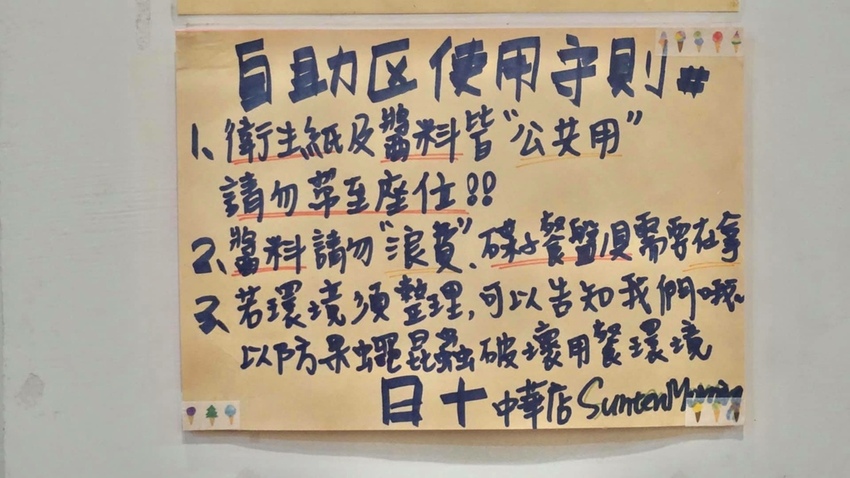 自助区使用守則#
1、衛生紙及醬料皆"公共用"
請勿帶至座位!!
2、醬料請勿"浪費"、碟子餐盤具需要在拿
3、若環境須整理,可以告知我們哦~
以防果蠅昆蟲破壞用餐環境
日十 中華店 Sunten